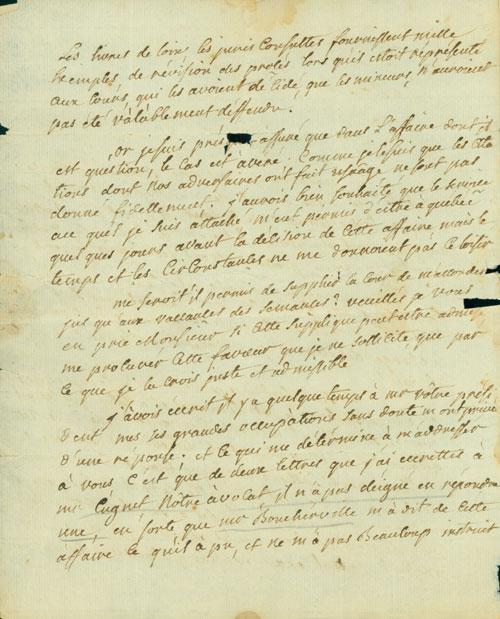 Les livres de loix les juris consultes fournissent mille
Exemples de révision des procès lors qu'il étoit représenté
aux cours, qui les avoient décidé, que les mineurs n'avoient
pas été valablement deffendu.
or je suis assuré que dans l'affaire dont il
est question, le cas est averé. Comme je le suis que les cita
tions dont nos adversaires ont fait usage ne sont pas
donné fidellement. j'aurois bien souhaité que le service
auquel je suis attaché m'eut permis d'être a quebec
quelques jours avant la décision de cette affaire mais le
temps et les circonstances ne me donnoient pas ce loisir
me seroit il permis de supplier la cour de m'accorder
jusqu'aux vaccances des semances? veuillés je vous
en prie Monsieur si cette supplique peut être admise
me procurer cette faveur que je ne sollicite que par
ce que je la crois juste et admissible
j'avois écrit il y a quelque temps à mr vôtre presi
dent mes ses grandes occupations sans doute m'ont privé
d'une réponse. et ce qui me détermine à m'addresser
à vous c'est que de deux lettres que j'ai ecrittes à
mr Cugnet Nôtre avocat il n'a pas deigné en repondre
une, en sorte que mr Boucherville m'a dit de cette
affaire ce qu'il a pu, et ne m'a pas Beaucoup instruit